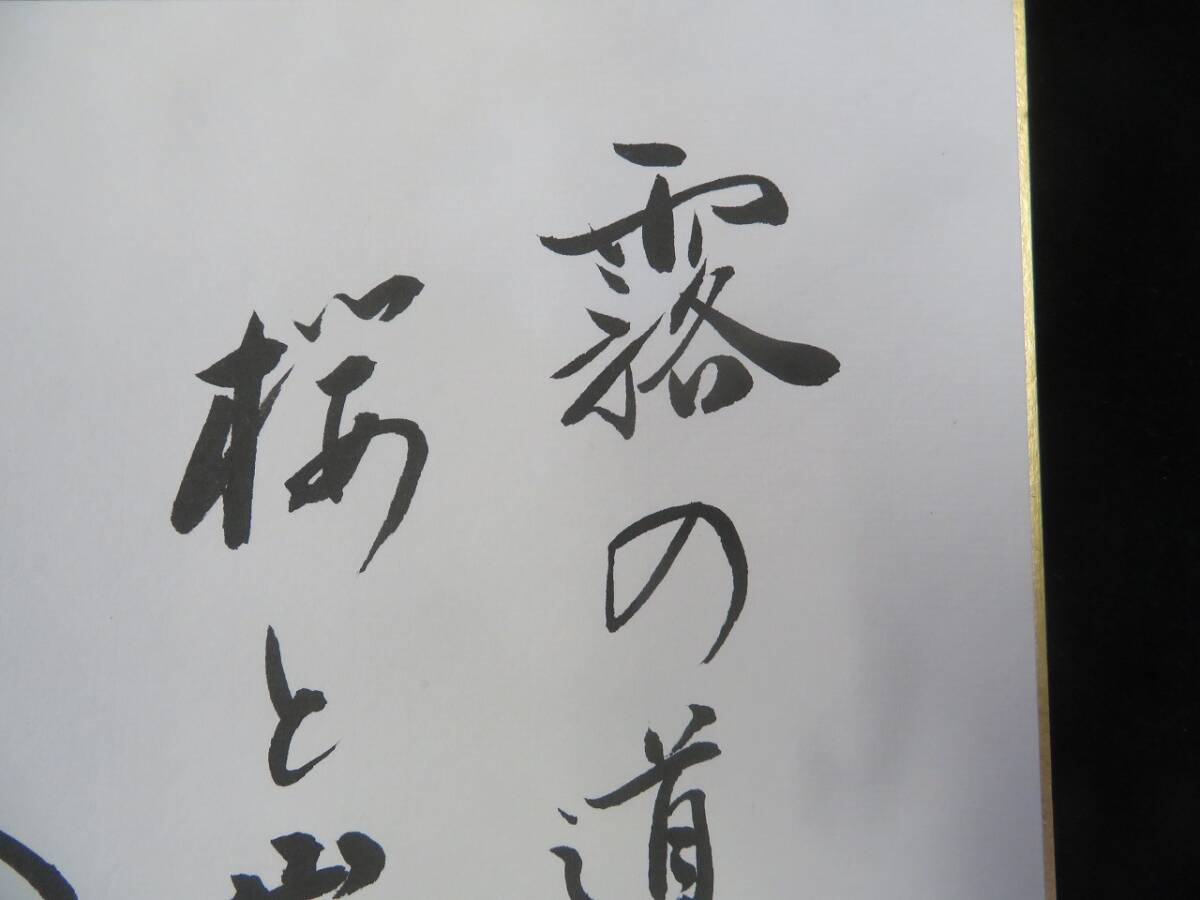 露の道
桜と